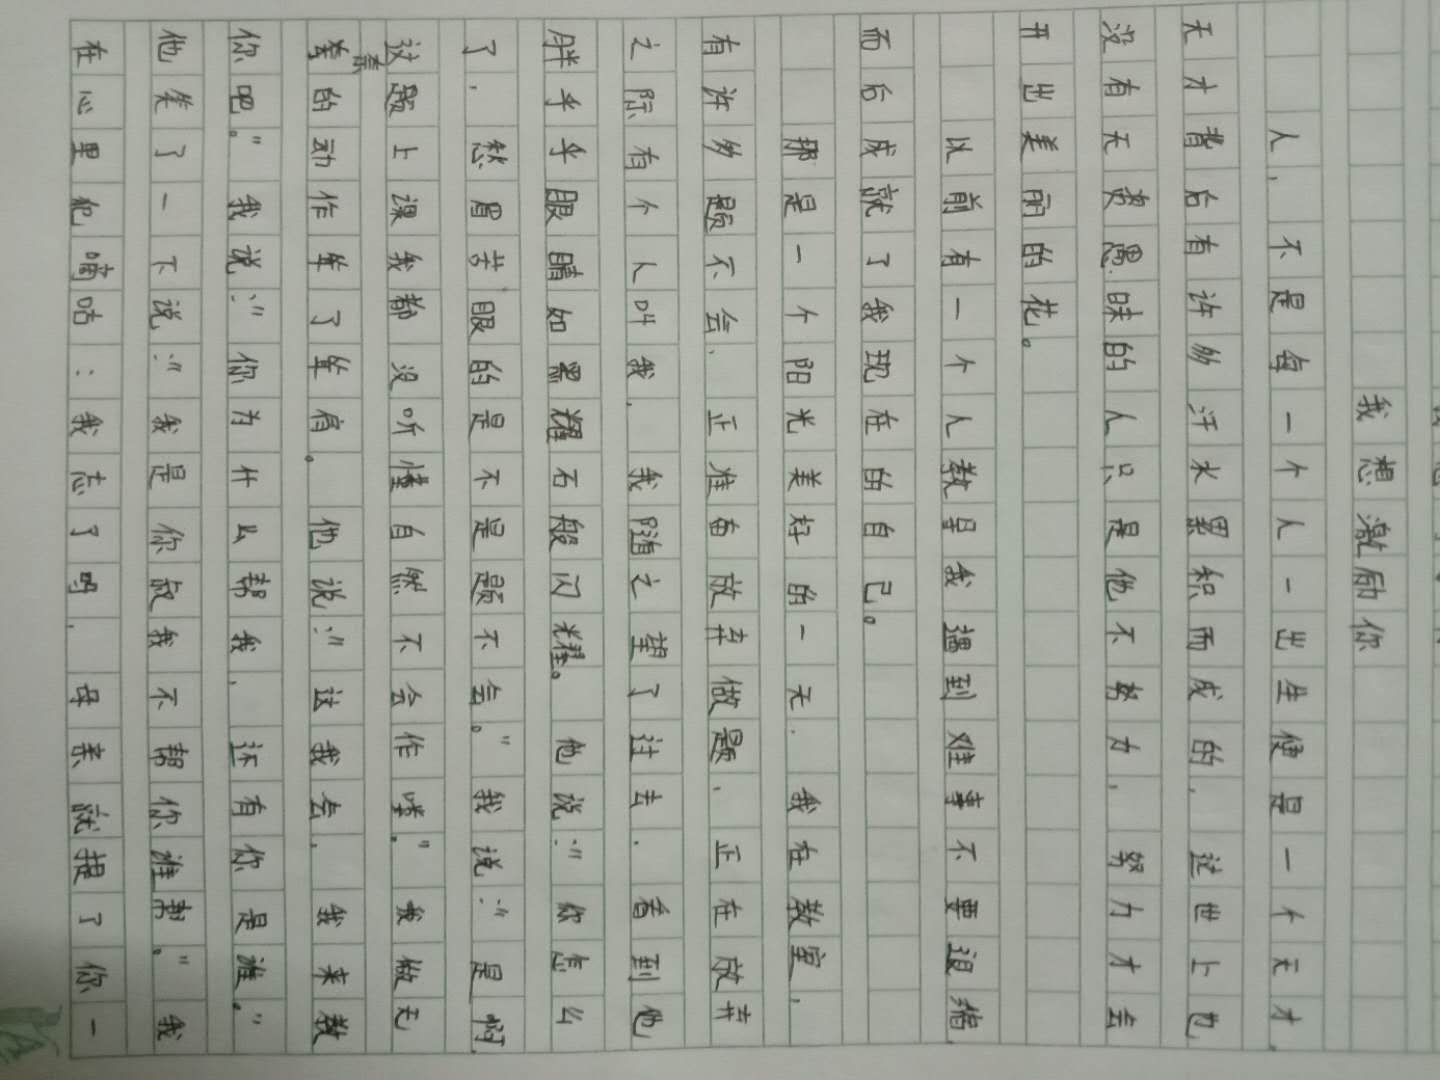 我想激励你
人，不是每一个人一出生便是一个天才，
天才背后有许多汗水累积而成的，这世上也
没有天类愚昧的人只是他不努力，努力才会
开出美丽的花。
以前有一个人教导我遇到难事不要退缩，
而后成就了我现在的自己。
那是一个阳光美好的一天．我在教室，
有许多题不会，正准备放弃做题，正在放弃
之际有个人叫我，我随之望了过去．看到他
胖乎乎眼睛如黑耀石般闪耀。他说：“你怎么
了，愁眉苦眼的是不是题不会。”我说：“是啊，
这题上课我都没听懂自然不会作喽。”我做无
奈的动作耸了耸肩。他说：“这我会，我来教
你吧。”我说：“你为什么帮我，还有你是谁。”
他笑了一下说：“我是你叔我不帮你谁帮。”我
在心里犯嘀咕：我忘了吗，母亲就提了你一